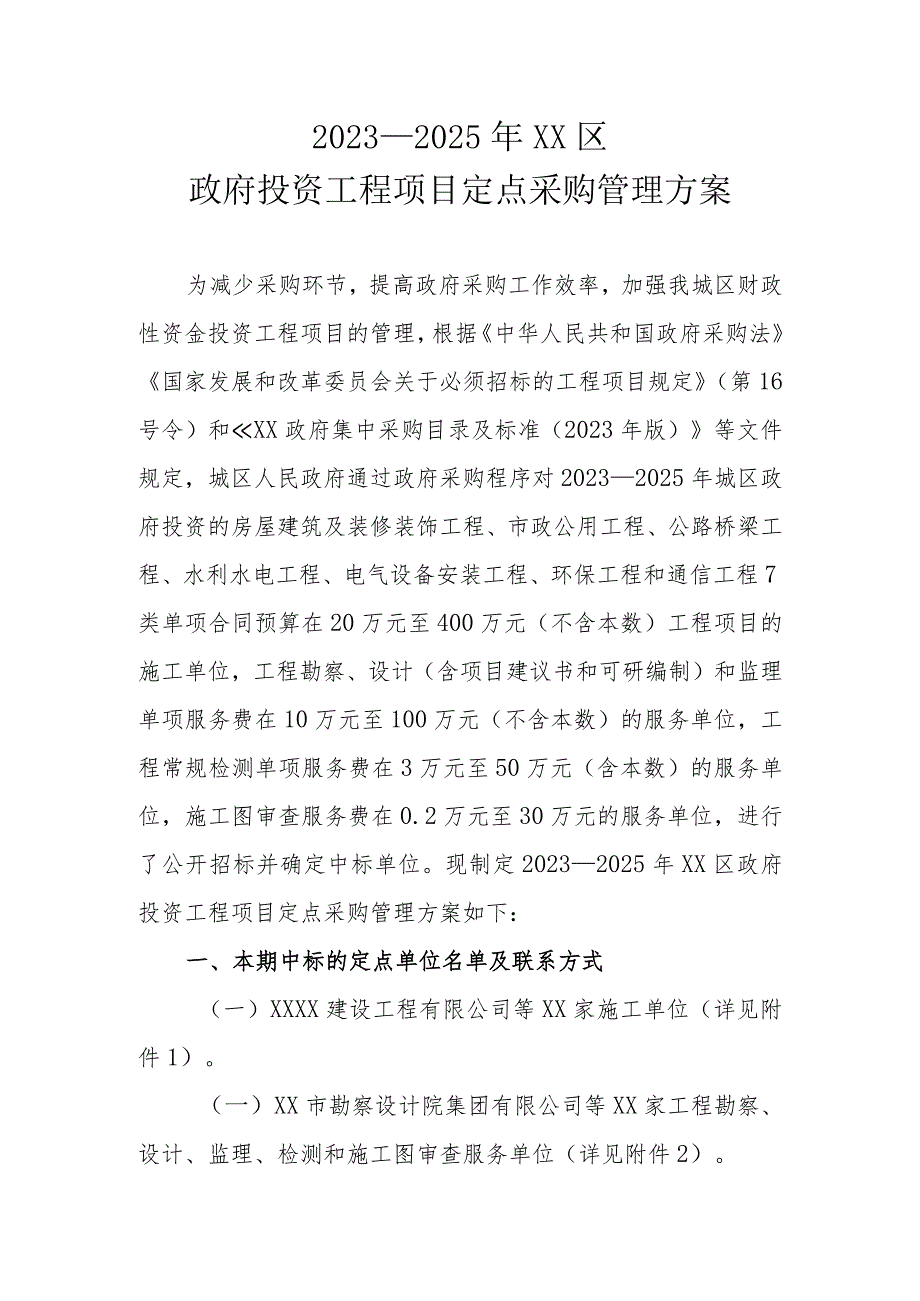 2023—2025 年 XX 区
政府投资工程项目定点采购管理方案
为减少采购环节，提高政府采购工作效率，加强我城区财政
性资金投资工程项目的管理，根据《中华人民共和国政府采购法》
《国家发展和改革委员会关于必须招标的工程项目规定》（第 16
号令）和≪XX 政府集中采购目录及标准（2023 年版）》等文件
规定，城区人民政府通过政府采购程序对 2023—2025 年城区政
府投资的房屋建筑及装修装饰工程、市政公用工程、公路桥梁工
程、水利水电工程、电气设备安装工程、环保工程和通信工程 7
类单项合同预算在 20 万元至 400 万元（不含本数）工程项目的
施工单位，工程勘察、设计（含项目建议书和可研编制）和监理
单项服务费在 10 万元至 100 万元（不含本数）的服务单位，工
程常规检测单项服务费在 3 万元至 50 万元（含本数）的服务单
位，施工图审查服务费在 0.2 万元至 30 万元的服务单位，进行
了公开招标并确定中标单位。现制定 2023—2025 年 XX 区政府
投资工程项目定点采购管理方案如下：
一、本期中标的定点单位名单及联系方式
（一）XXXX 建设工程有限公司等 XX 家施工单位（详见附
件 1）。
（一）XX 市勘察设计院集团有限公司等 XX 家工程勘察、
设计、监理、检测和施工图审查服务单位（详见附件 2）。